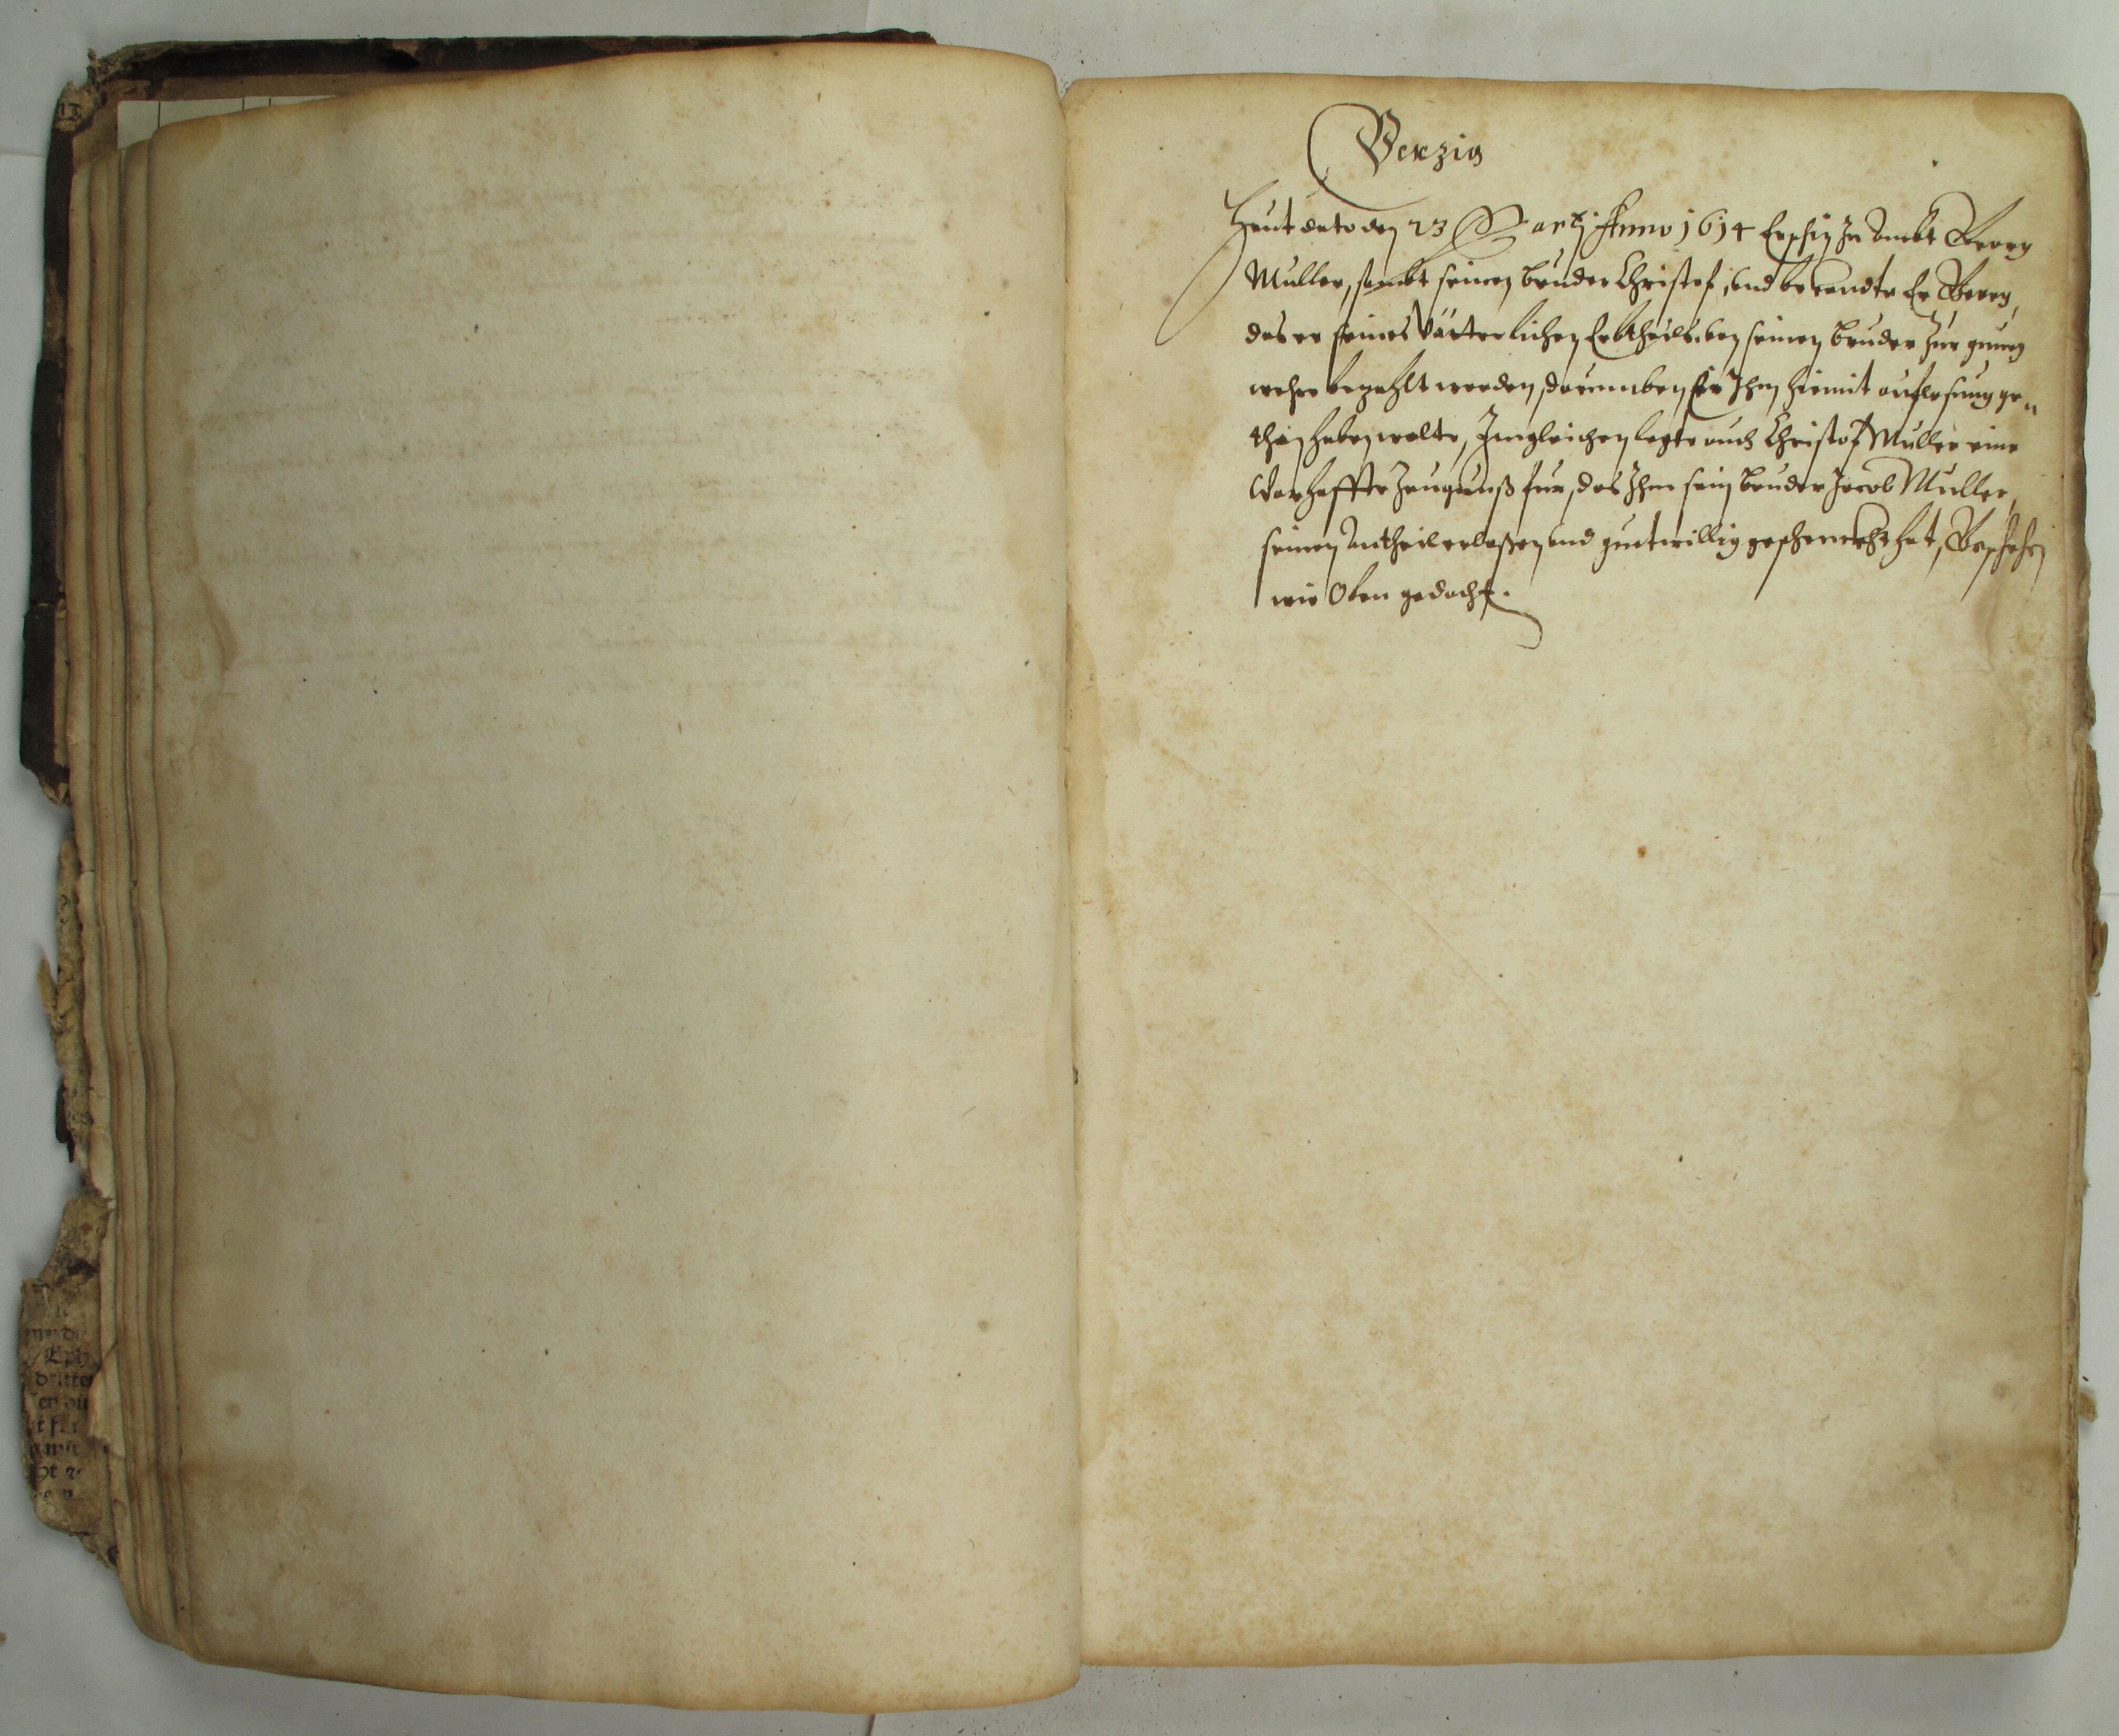 Verzig
Heut dato den 23 Martij Anno 1614 Erschin Im Ambt Georg
Muller, sambt seinen bruder Christof, und bekandte Er Georg,
das er seines Vätterlichen Erbtheils, von seinen bruder zur gnueg
wehre bezahlt worden, darumben Er Ihm hiemit auflassung ge„
than haben wolte, Imgleichen legte auch Christof Muller eine
Warhaffte Zeugnuß fur, das Ihm sein bruder Jacob Muller,
seinen Antheil erlaßen und guetwillig geschenckht hat, Geschehen
wie Oben gedacht.